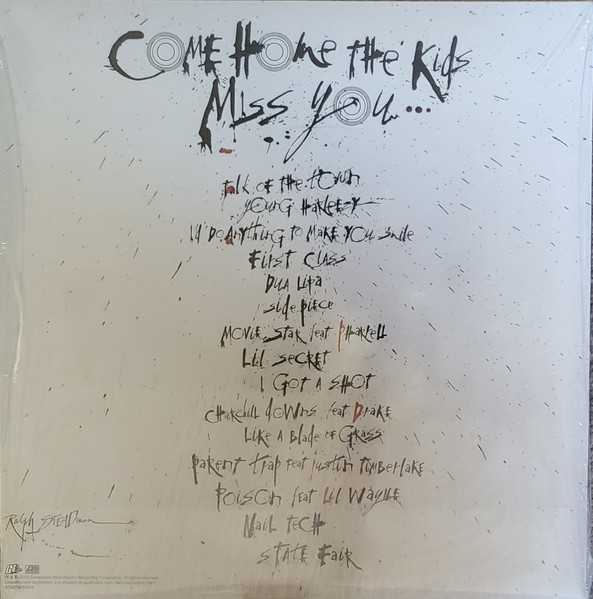 Come Home the Kids
Miss You...
Talk of the Town
Young Harleezy
I'd Do Anything to Make You Smile
First Class
Dua Lipa
Side Piece
Movie Star feat Pharrell
Lil Secret
I Got A Shot
Churchill Downs feat Drake
Like A Blade of Grass
Parent Trap feat Justin Timberlake
Poison feat Lil Wayne
Nail Tech
State Fair
Ralph STEADman